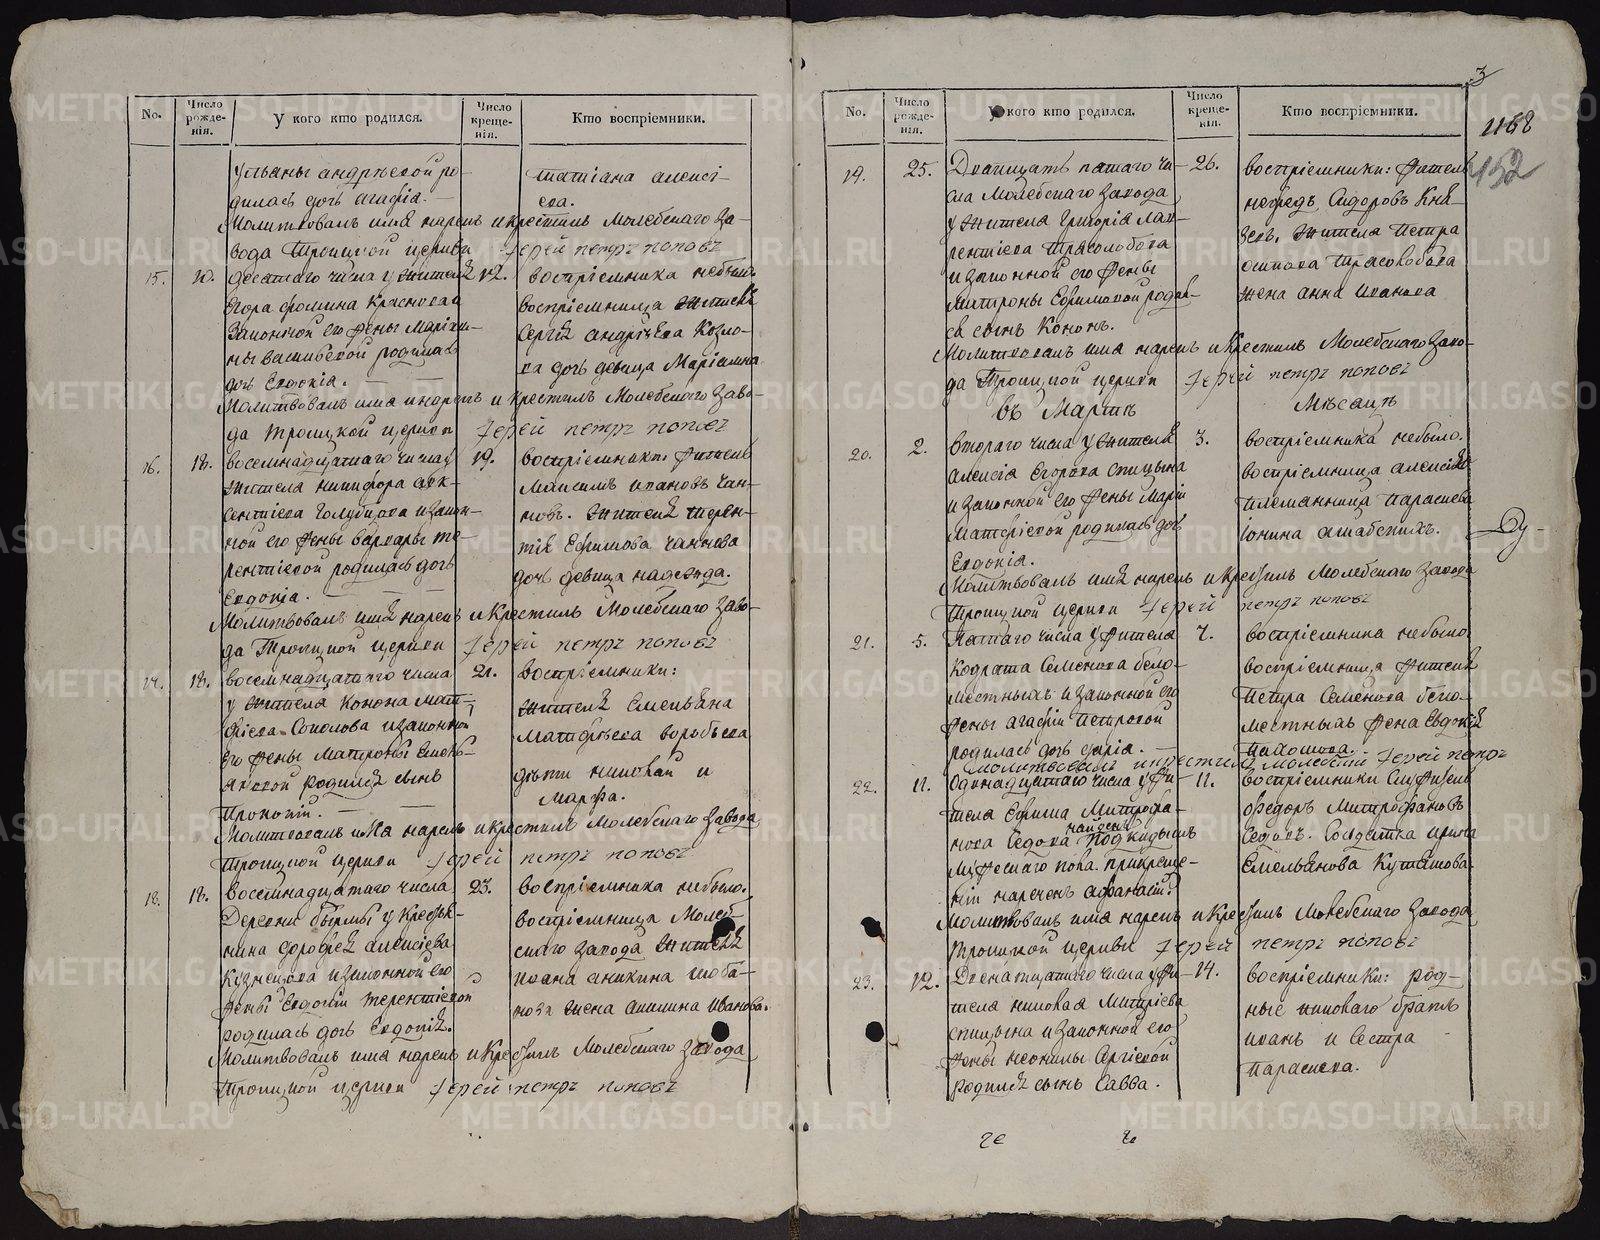 No.
Число рожде-нія.
У кого кто родился.
Число креще-нія.
Кто воспріемники.
Ульяны андрѣевой ро-
дилась дочь агафіа.
татіана алексі-
ева.
Молитвовалъ имя нарекъ и крестилъ Молебскаго за-
вода Троицкой церкви Іерей петръ поповъ
15. 10. десятаго числа у жителя 12.
Егора фомина краснова
Законной его жены Маріан-
ны васильевой родилась
дочь Евдокіа.
воспріемника небыло.
воспріемница жителя
Сергія андрѣева Козло-
ва дочь девица Маріамна
Молитвовалъ имя и нарекъ и крестилъ Молебскаго заво-
да троицкой церкви Іерей петръ поповъ
16. 18. восемнадцатаго числа у 19.
жителя никифора авк-
сентіева Голубцова и закон-
ной его жены варвары те-
рентіевой родилась дочь
Евдокіа.
воспріемники: житель
Максимъ ивановъ чан-
новъ. жителя терен-
тія Ефимова чаннова
дочь девица надежда.
Молитвовалъ имя нарекъ и крестилъ Молебскаго заво-
да Троицкой церкви Іерей петръ поповъ
17. 18. восемнадцатаго числа 21.
у жителя Конона мат-
фіева Соколова и законной
его жены Матроны Емель-
яновой родился сынъ
Прокопій.
воспріемники:
жителя Емельяна
матфѣева воробьева
дѣти николай и
Марфа.
Молитвовалъ имя нарекъ и крестилъ Молебскаго завода
Троицкой церкви Іерей петръ поповъ
18. 18. восемнадцатаго числа 23.
Деревни бырмы у крестья-
нина дорофея алексіева
Кузнецова и законной его
жены Евдокіи терентіевой
родилась дочь Евдокія.
воспріемника небыло.
воспріемница Молеб-
скаго завода жителя
иоана аникина шоба-
нова жена акилина Иванова.
Молитвовалъ имя нарекъ и крестилъ Молебскаго завода
Троицкой церкви Іерей петръ поповъ
3
1168
152
No.
Число рожде-нія.
У кого кто родился.
Число креще-нія.
Кто воспріемники.
19. 25. Двatцать пятаго чи- 26.
сла Молебскаго завода
у жителя Григоріа Лав-
рентіева трясолобова
и законной его жены
Матроны Ефимовой родил-
ся сынъ Кононъ.
воспріемники: житель
нефедъ Сидоровъ Кня-
зевъ. жителя петра
осипова трясолобова
жена анна иванова
Молитвовалъ имя нарекъ и крестилъ Молебскаго заво-
да Троицкой церкви Іерей петръ поповъ
въ Мартѣ Мѣсяцѣ
20. 2. втораго числа у жителя 3.
алексіа Егорова спицына
и законной его жены Маріи
матфѣевой родилась дочь
Евдокіа.
воспріемника небыло.
воспріемница алексіева
племянница параскева
іонина
Молитвовалъ имя нарекъ и крестилъ Молебскаго завода
Троицкой церкви Іерей петръ поповъ
21. 5. Пятаго числа у жителя 7.
Кодрата Семенова бело-
местныхъ и законной его
жены агафіи Петровой
родилась дочь даріа.
воспріемника небыло.
воспріемница жителя
Петра Семенова бело-
местныхъ жена Евдокія
Пахомова.
молитвовалъ и крестилъ молебскій Іерей петръ
22. 11. Одинадцатаго числа у жи- 11.
теля Ефима Митрофа-
нова Седова найденъ подкидышъ
мужескаго пола. при креще-
ніи нареченъ афанасій.
воспріемники
федоръ митрофановъ
Седовъ. Солдатка ирина
Емельянова Куташова.
Молитвовалъ имя нарекъ и крестилъ Молебскаго завода
троицкой церкви Іерей петръ поповъ
23. 12. Двенатцатаго числа у жи- 14.
теля николая Митріева
спицына и законной его
жены неонилы Сргіевой
родился сынъ Савва.
воспріемники: род-
ные николаго братъ
иванъ и сестра
параскева.